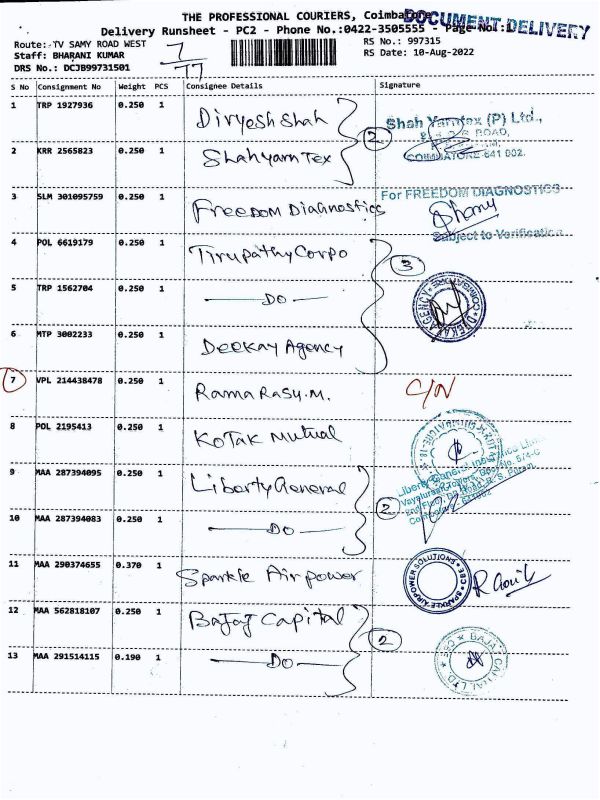 THE PROFESSIONAL COURIERS, Coimbatore
DOCUMENT DELIVERY
Delivery Runsheet - PC2 - Phone No.:0422-3505555 - Page No.:1
Route: TV SAMY ROAD WEST RS No.: 997315
Staff: BHARANI KUMAR RS Date: 10-Aug-2022
DRS No.: DCJB99731501
S No Consignment No Weight PCS Consignee Details Signature
1 TRP 1927936 0.250 1 Divyesh Shah
2
Shah Yarntex (P) Ltd.,
ROAD,
COIMBATORE-641 002.
2 KRR 2565823 0.250 1 Shahyarn Tex
3 SLM 301095759 0.250 1 Freedom Diagnostics
For FREEDOM DIAGNOSTICS
Subject to Verification
4 POL 6619179 0.250 1 Tirupathy Corpo
3
5 TRP 1562704 0.250 1 — DO —
AGENCY COIMBATORE
6 MTP 3002233 0.250 1 Deekay Agency
7 VPL 214438478 0.250 1 Rama Rasu.M. C/N
8 POL 2195413 0.250 1 Kotak Mutual
9 MAA 287394095 0.250 1 Liberty General
2
Liberty General Insurance Limited
10 MAA 287394083 0.250 1 — DO —
11 MAA 290374655 0.370 1 Sparkle Air power
SPARKLE AIRPOWER SOLUTIONS CBE
12 MAA 562818107 0.250 1 Bajaj Capital
2
BAJAJ CAPITAL LTD CBE
13 MAA 291514115 0.190 1 — DO —